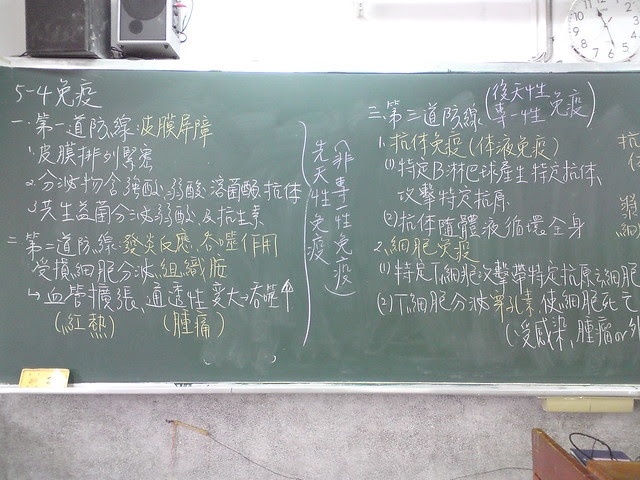 5-4免疫
一、第一道防線:皮膜屏障
1.皮膜排列緊密
2.分泌物含強酸、弱酸、溶菌酶、抗体
3.共生益菌分泌弱酸及抗生素
二、第二道防線:發炎反應、吞噬作用
受損細胞分泌組織胺
↳血管擴張、通透性變大→吞噬↑
(紅熱) (腫痛)
(非專一性免疫)
先天性免疫
三、第三道防線(後天性 專一性 免疫)
1.抗体免疫(体液免疫)
(1)特定B淋巴球產生特定抗体、
攻擊特定抗原
(2)抗体隨體液循環全身
2.細胞免疫
(1)特定T細胞攻擊帶特定抗原之細胞
(2)T細胞分泌穿孔素,使細胞死亡
(受感染、腫瘤or外
抗
12
11
10
9
8
7
6
5
4
3
2
1